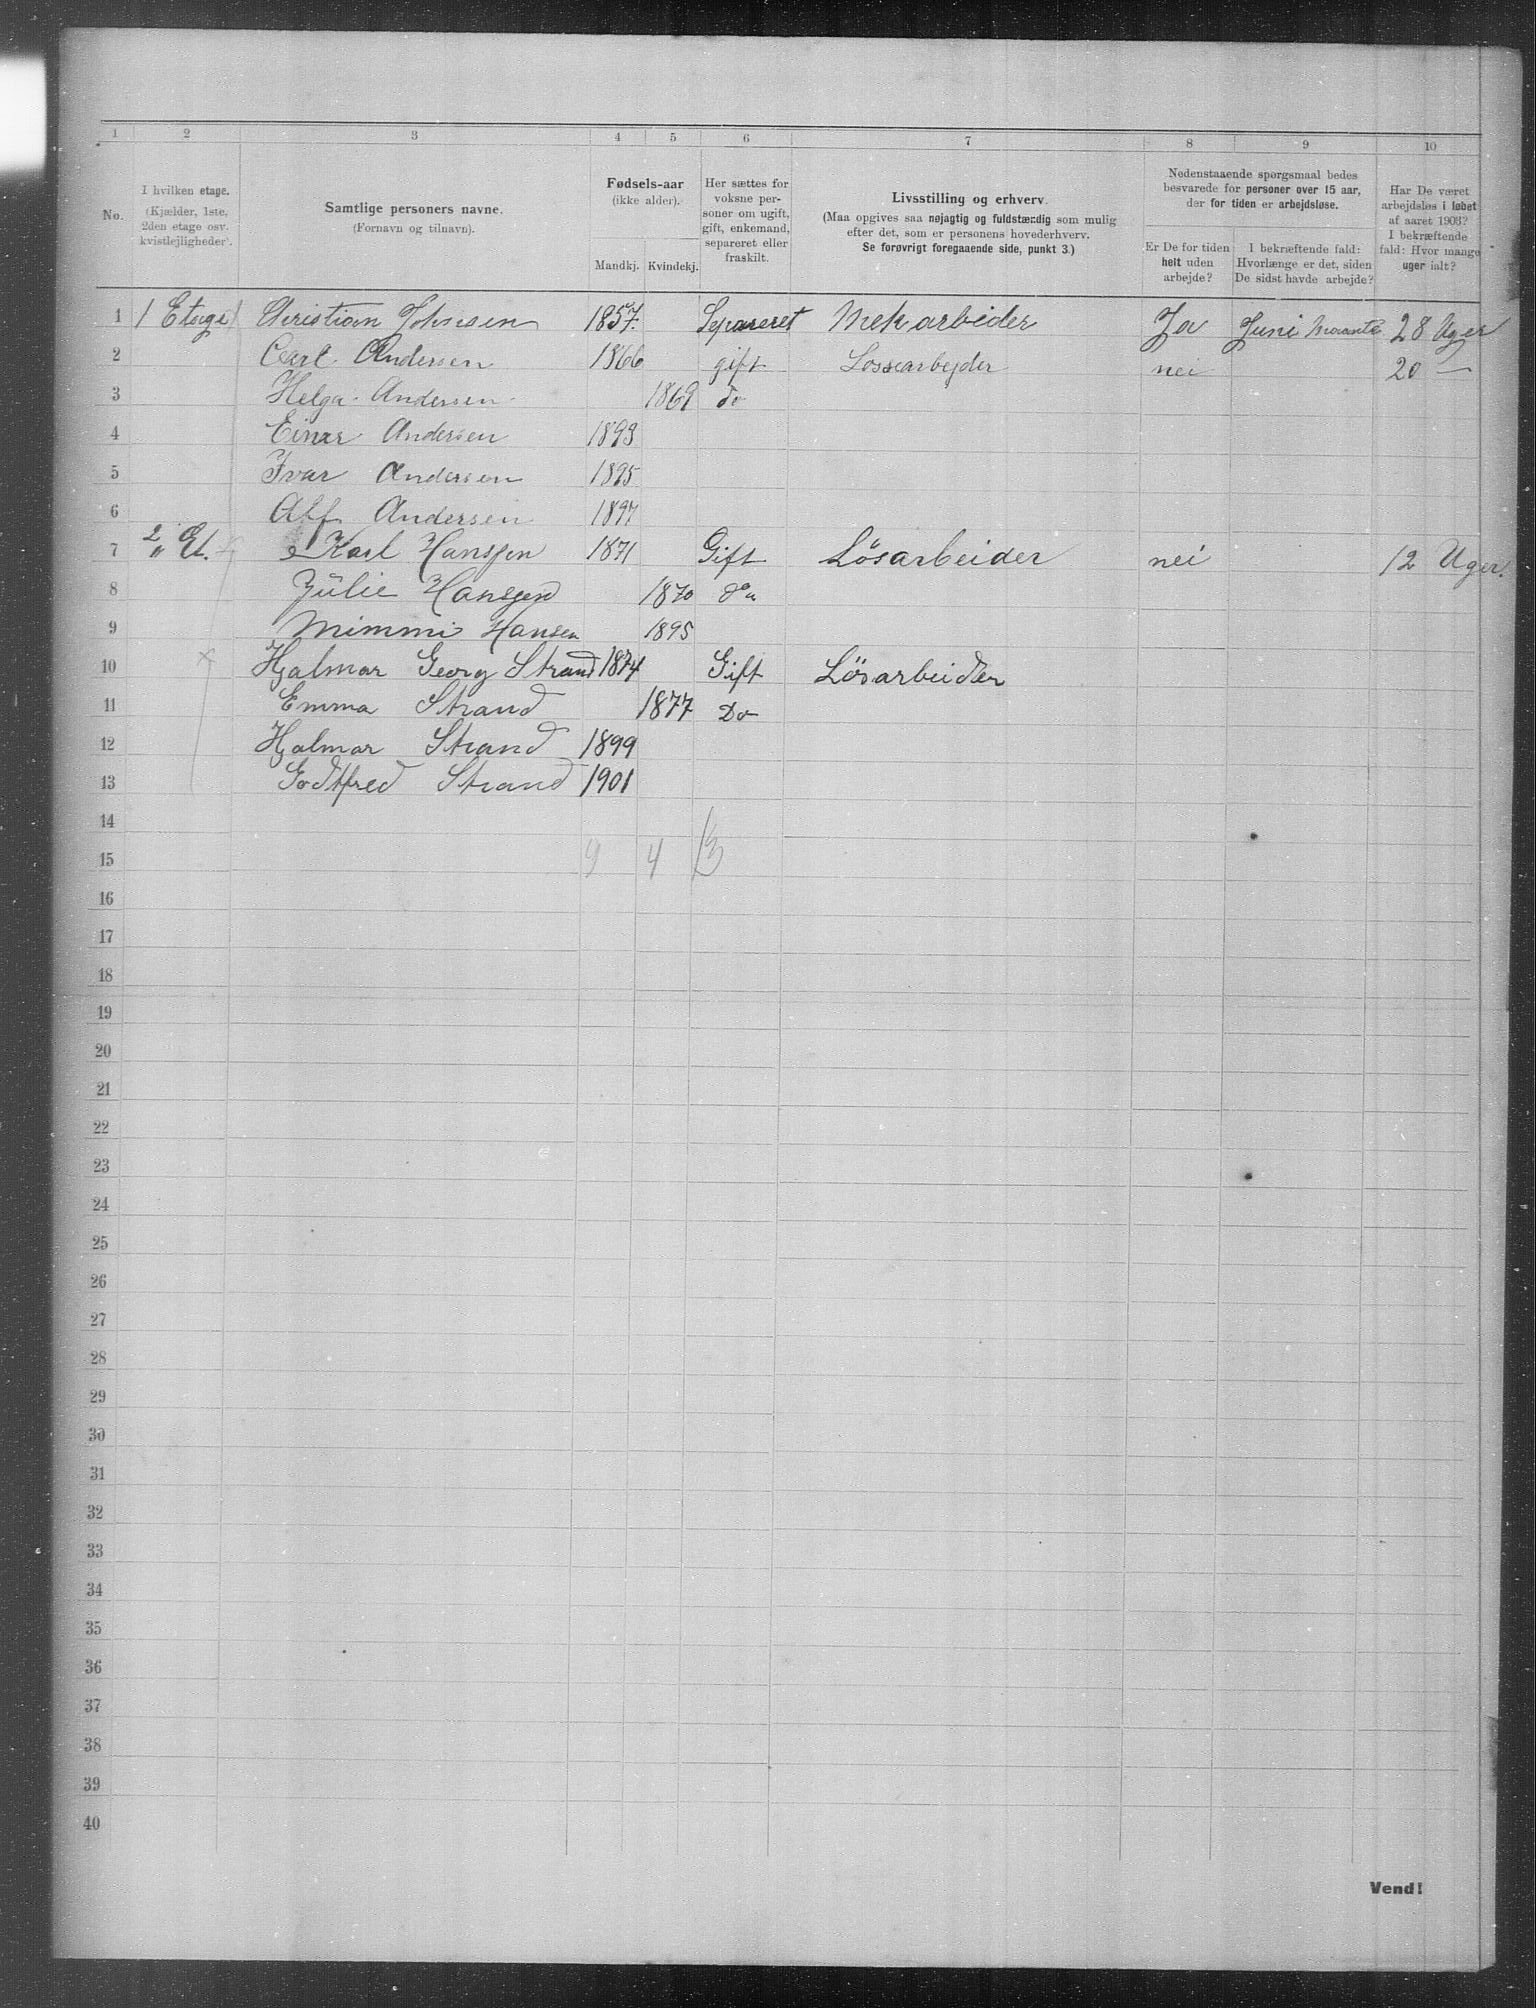 1 2 3 4 5 6 7 8 9 10
No.
I hvilken etage. (Kjælder, 1ste, 2den etage osv. kvistlejligheder).
Samtlige personers navne.
(Fornavn og tilnavn).
Fødsels-aar
(ikke alder).
Mandkj. Kvindekj.
Her sættes for voksne personer om ugift, gift, enkemand, separeret eller fraskilt.
Livsstilling og erhverv.
(Maa opgives saa nøjagtig og fuldstændig som mulig efter det, som er personens hovederhverv.
Se forøvrigt foregaaende side, punkt 3.)
Nedenstaaende spørgsmaal bedes besvarede for personer over 15 aar, der for tiden er arbejdsløse.
Er De for tiden helt uden arbejde?
I bekræftende fald: Hvorlænge er det, siden De sidst havde arbejde?
Har De været arbejdsløs i løbet af aaret 1903? I bekræftende fald: Hvor mange uger ialt?
1 1 Etage Christian Johnsen 1857. Separeret Mekarbeider Ja Juni Maante 28 Uger
2 Carl Andersen 1866 gift Lossearbejder nei 20 —
3 Helga Andersen 1869 do
4 Einar Andersen 1893
5 Ivar Andersen 1895
6 Alf Andersen 1897
7 2 Et. Karl Hanssen 1871 Gift Løsarbeider nei 12 Uger.
8 Julie Hanssen 1870 do
9 Mimmi Hansen 1895
10 x Hjalmar Georg Strand 1874 Gift Løsarbeider
11 Emma Strand 1877 Do
12 Hjalmar Strand 1899
13 Godtfred Strand 1901
14
15 9 4 13
16
17
18
19
20
21
22
23
24
25
26
27
28
29
30
31
32
33
34
35
36
37
38
39
40
Vend!